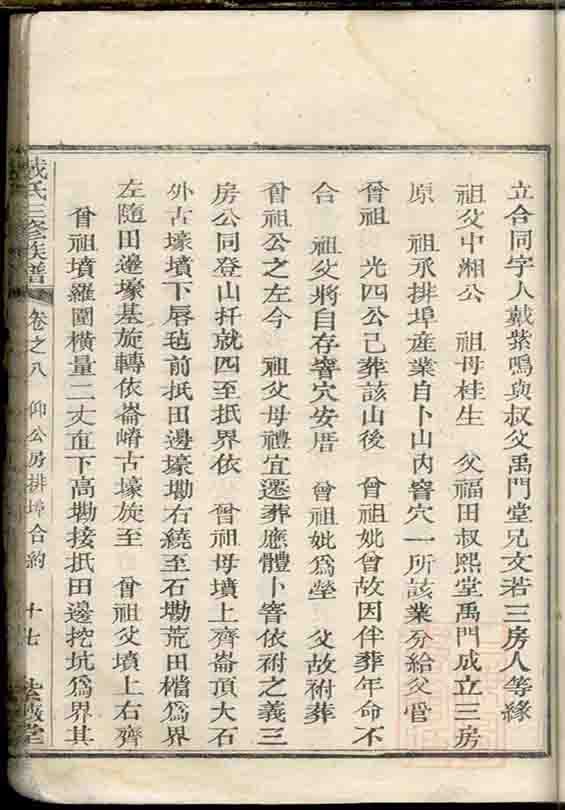 立合同字人戴紫鳴與叔父禹門堂兄文若三房人等緣
祖父中湘公 祖母桂生 父福田叔熙堂禹門成立三房
原 祖承排埠產業自卜山內窨穴一所該業分給父管
曾祖 光四公已葬該山後 曾祖妣曾故因伴葬年命不
合 祖父將自存窨穴安厝 曾祖妣為塋 父故祔葬
曾祖公之左今 祖父母禮宜遷葬應體卜窨依祔之義三
房公同登山扦就四至抵界依 曾祖母墳上齊崙頂大石
外古壕墳下唇毡前抵田邊壕墈右繞至石墈荒田檔為界
左隨田邊壕基旋轉依崙嵴古壕旋至 曾祖父墳上右齊
曾祖墳羅圍橫量二丈直下高墈接抵田邊挖坑為界其
氏三修族譜 卷之八 仰公房排埠合約 十七 堂